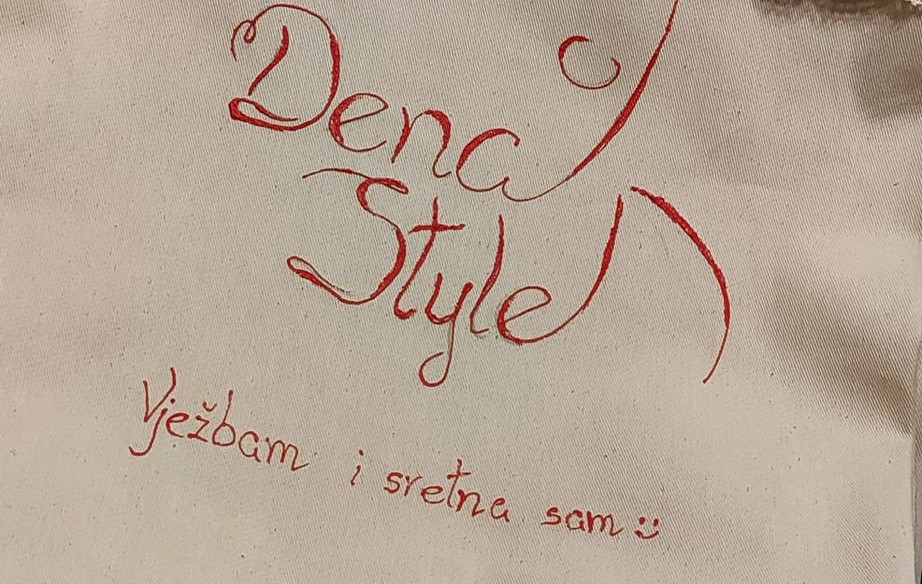 Dena
Style
Vježbam i sretna sam :)